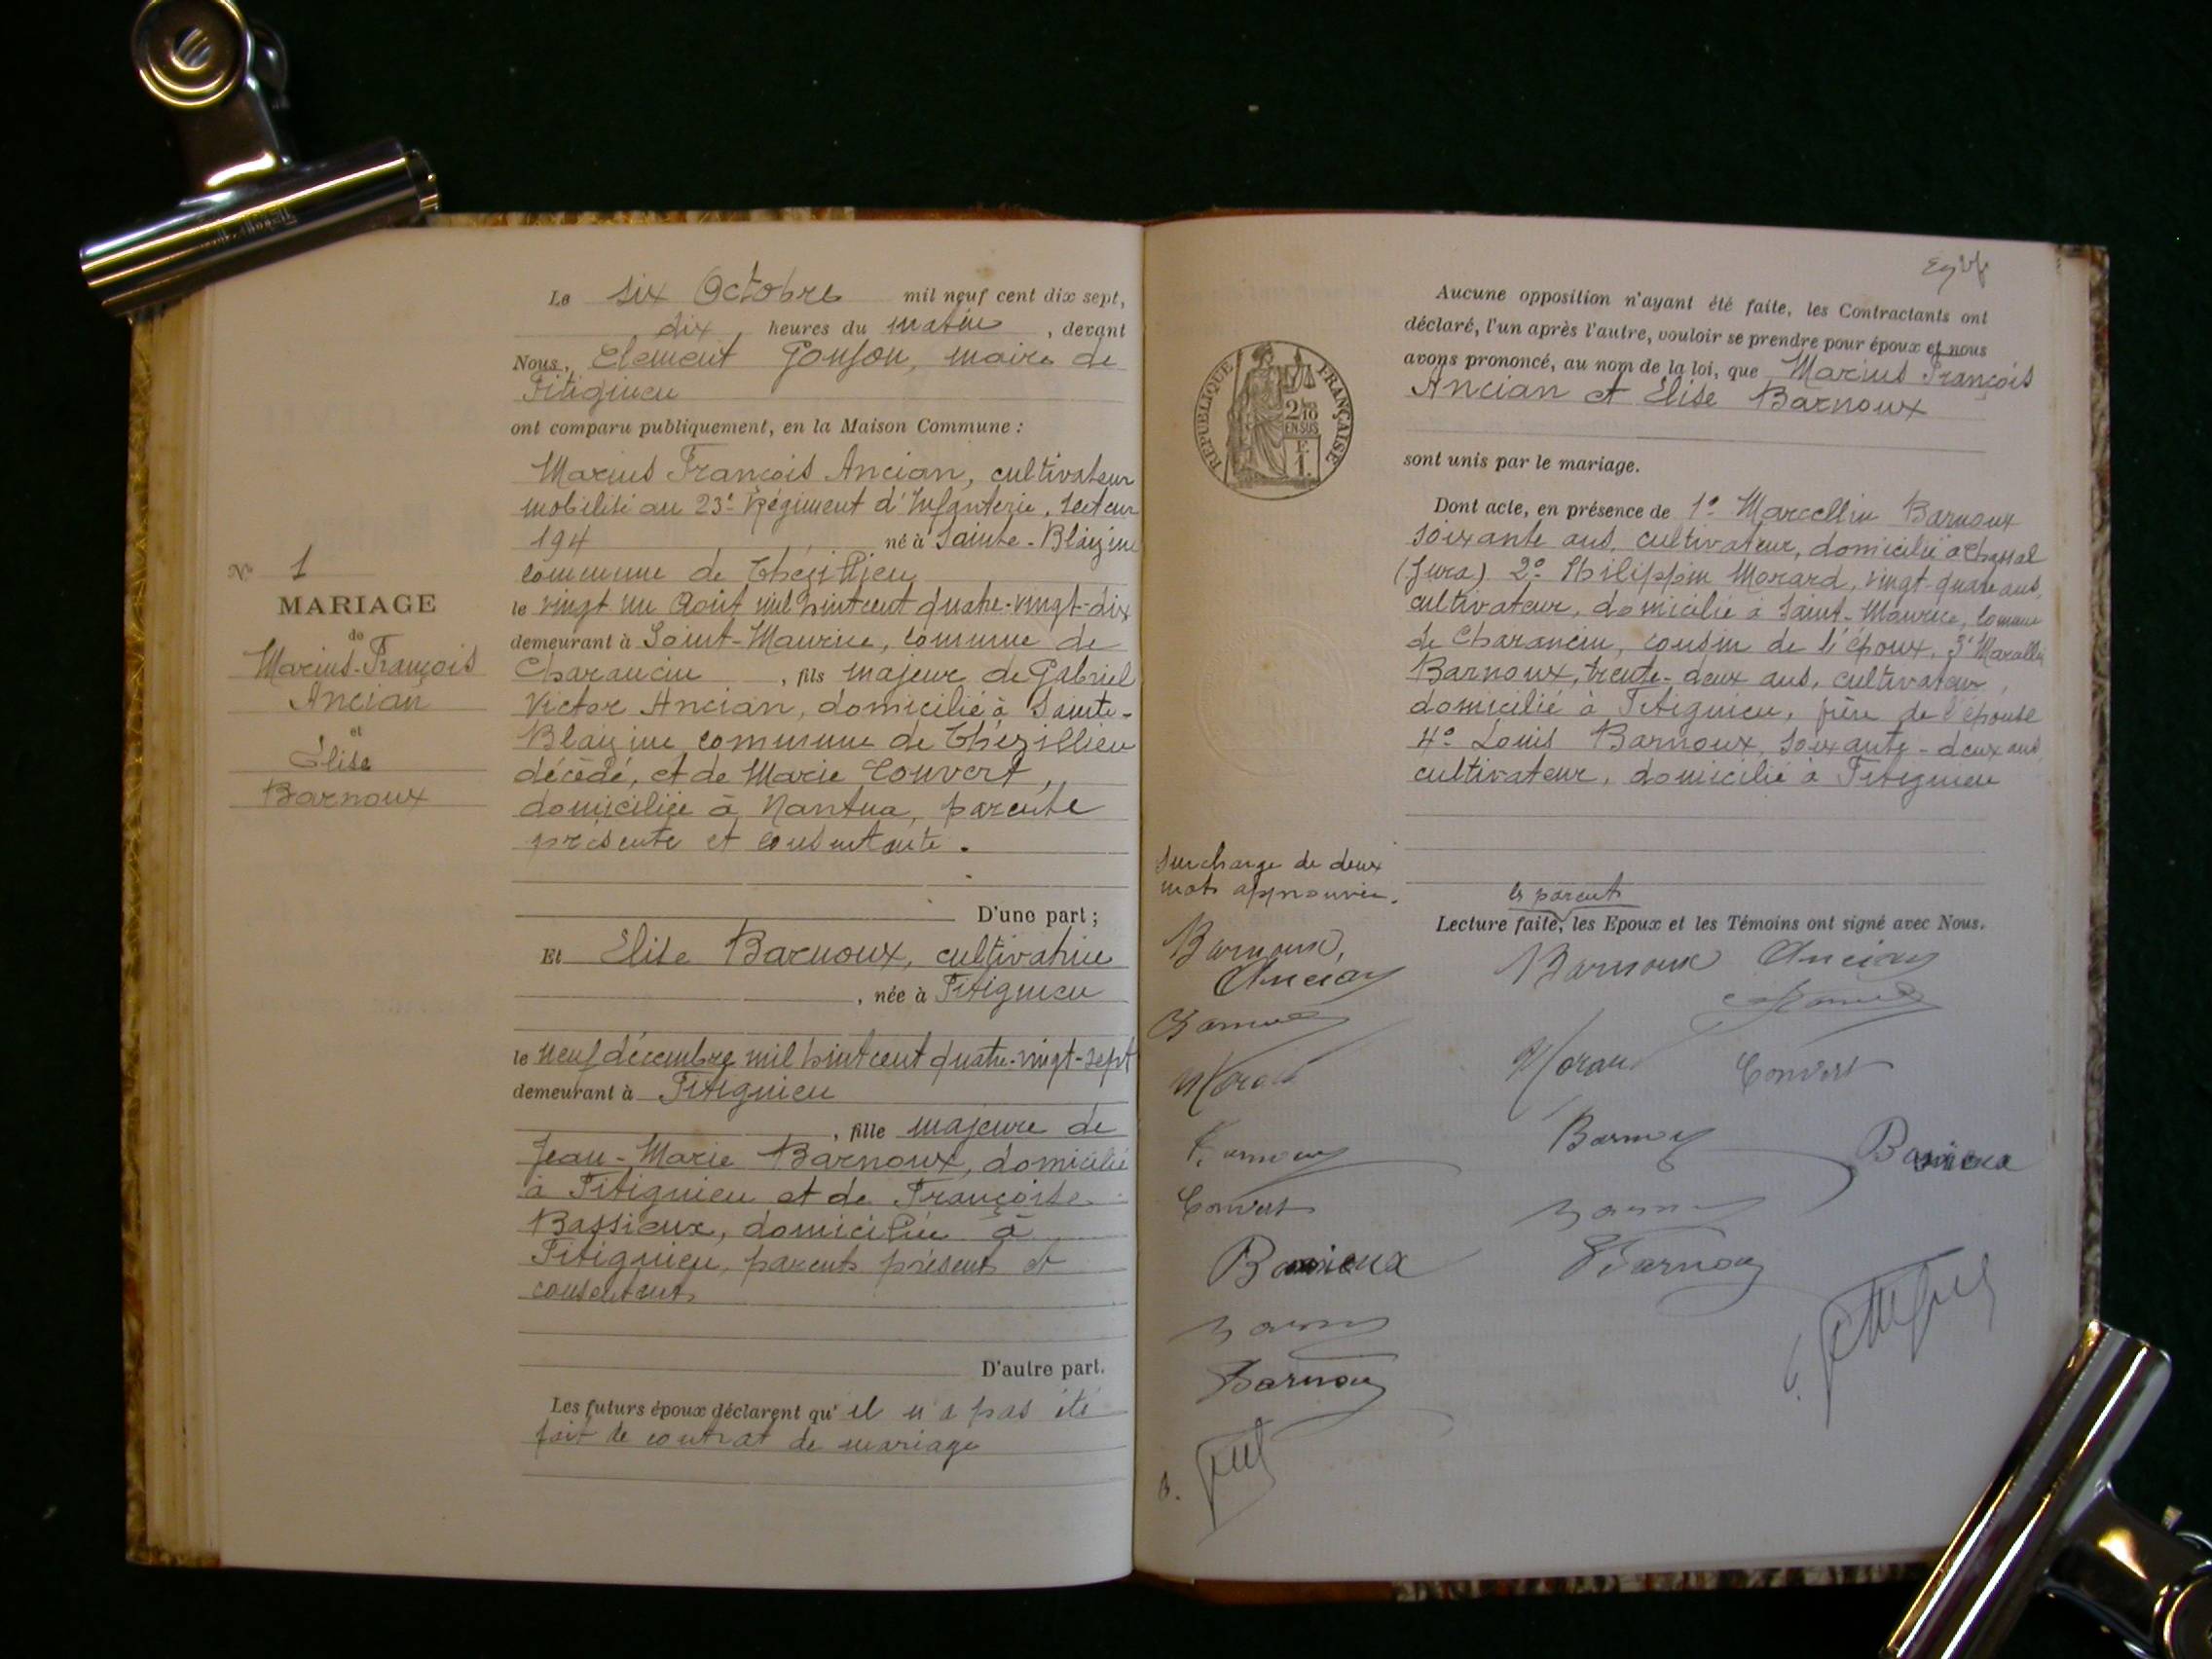 N° 1
MARIAGE
de
Marius-François
Ancian
et
Élise
Barnoux
Le six Octobre mil neuf cent dix sept,
dix heures du matin, devant
Nous, Clément Gonjon, maire de
Fitignieu
ont comparu publiquement, en la Maison Commune :
Marius François Ancian, cultivateur
mobilisé au 23e Régiment d'Infanterie, secteur
194 né à Sainte-Blaizine
commune de Thézillieu
le vingt un Août mil huit cent quatre-vingt-dix
demeurant à Saint-Maurice, commune de
Charancin, fils majeur de Gabriel
Victor Ancian, domicilié à Sainte-
Blaizine commune de Thézillieu
décédé, et de Marie Convert,
domiciliée à Nantua, parente
présente et consentante.
D'une part ;
Et Elise Barnoux, cultivatrice
, née à Fitignieu
le neuf décembre mil huit cent quatre-vingt-sept
demeurant à Fitignieu
, fille majeure de
Jean-Marie Barnoux, domicilié
à Fitignieu et de Françoise
Bassieux, domiciliée à
Fitignieu, parents présents et
consentants
D'autre part.
Les futurs époux déclarent qu'il n'a pas été
fait de contrat de mariage
REPUBLIQUE FRANÇAISE
2/10
EN SUS
F.
1.
Aucune opposition n'ayant été faite, les Contractants ont
déclaré, l'un après l'autre, vouloir se prendre pour époux et nous
avons prononcé, au nom de la loi, que Marius François
Ancian et Elise Barnoux
sont unis par le mariage.
Dont acte, en présence de 1° Marcellin Barnoux
soixante ans, cultivateur, domicilié à Chassal
(Jura) 2° Philippin Morard, vingt-quatre ans,
cultivateur, domicilié à Saint-Maurice, commune
de Charancin, cousin de l'époux, 3° Marcellin
Barnoux, trente-deux ans, cultivateur,
domicilié à Fitignieu, frère de l'épouse
4° Louis Barnoux, soixante-deux ans
cultivateur, domicilié à Fitignieu
les parents
Lecture faite, les Epoux et les Témoins ont signé avec Nous.
Surcharge de deux
mots approuvée.
Barnoux,
Ancian
Convert
Bassieux
Barnoux
Barnoux Ancian
Convert
Bassieux
Barnoux